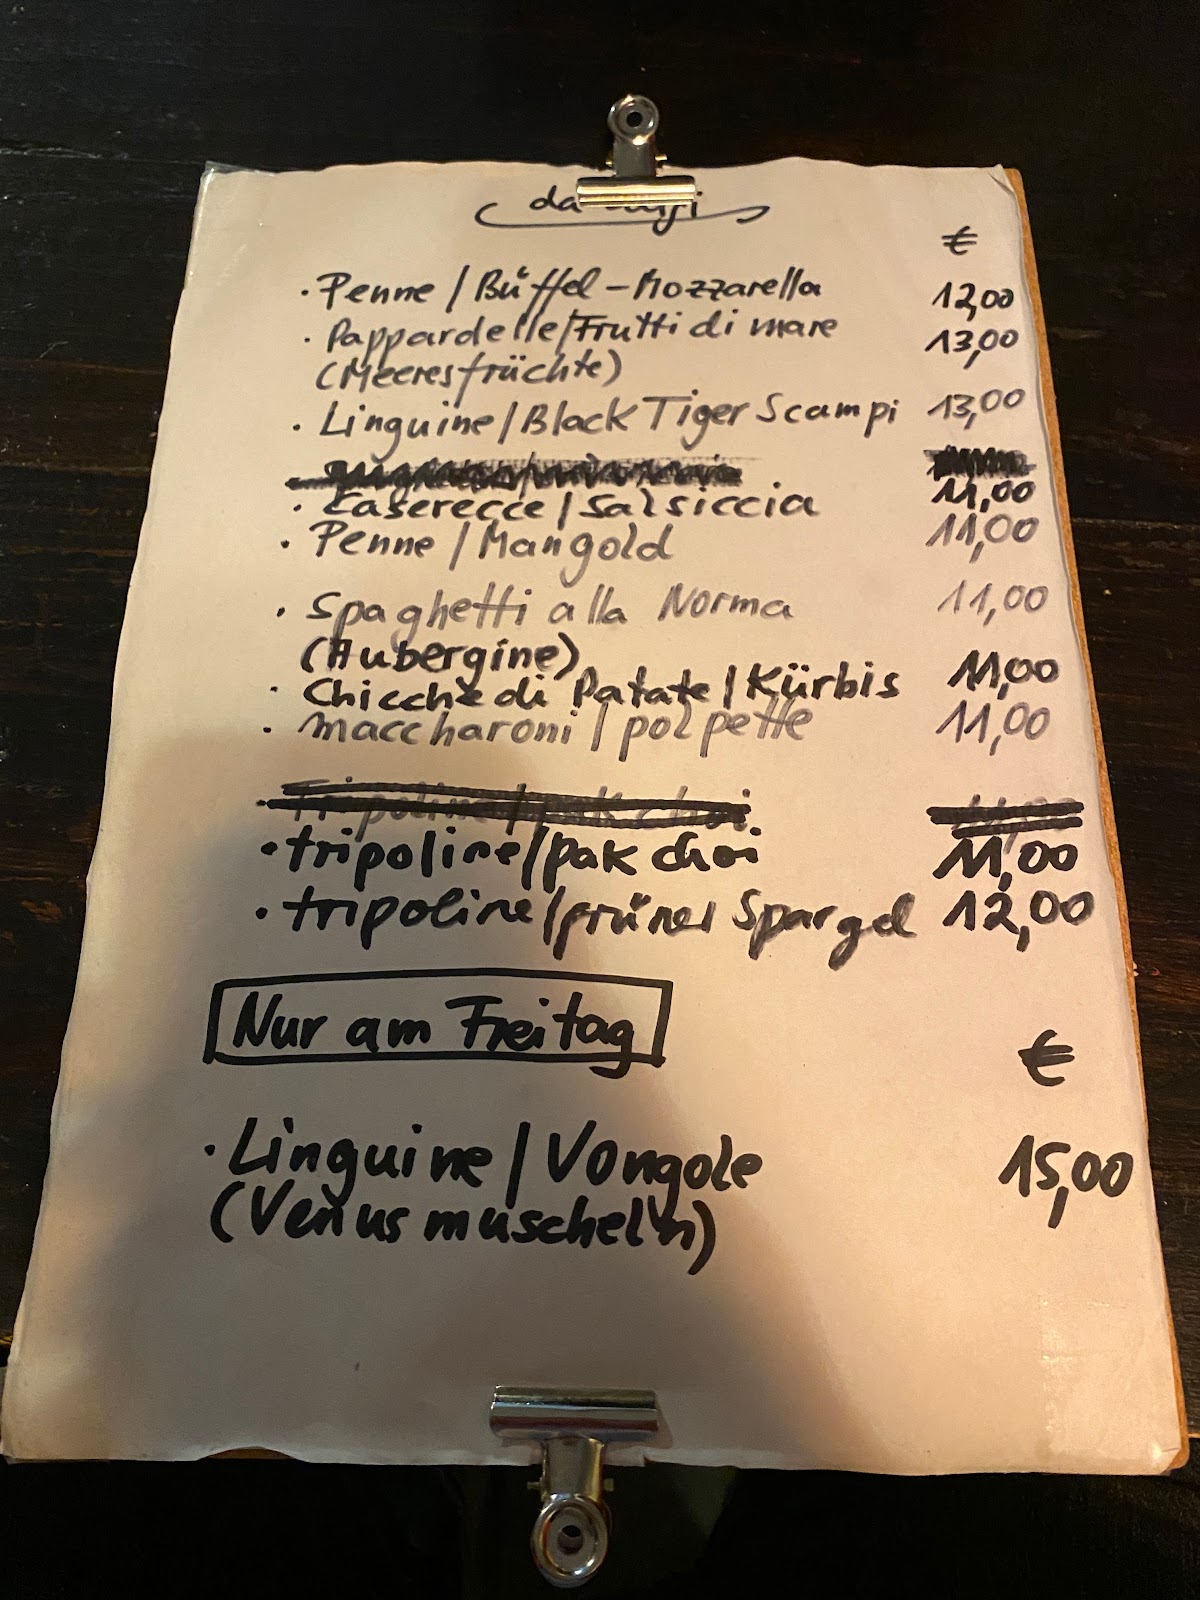 da Luigi
€
· Penne / Büffel-Mozzarella 12,00
· Pappardelle/Frutti di mare 13,00
(Meeresfrüchte)
· Linguine/Black Tiger Scampi 13,00
· Caserecce / Salsiccia 11,00
· Penne / Mangold 11,00
· Spaghetti alla Norma 11,00
(Aubergine)
· Chicche di Patate / Kürbis 11,00
· maccharoni / polpette 11,00
· Tripoline / pak choi
· tripoline/pak choi 11,00
· tripoline/grüner Spargel 12,00
Nur am Freitag
€
· Linguine / Vongole 15,00
(Venusmuscheln)